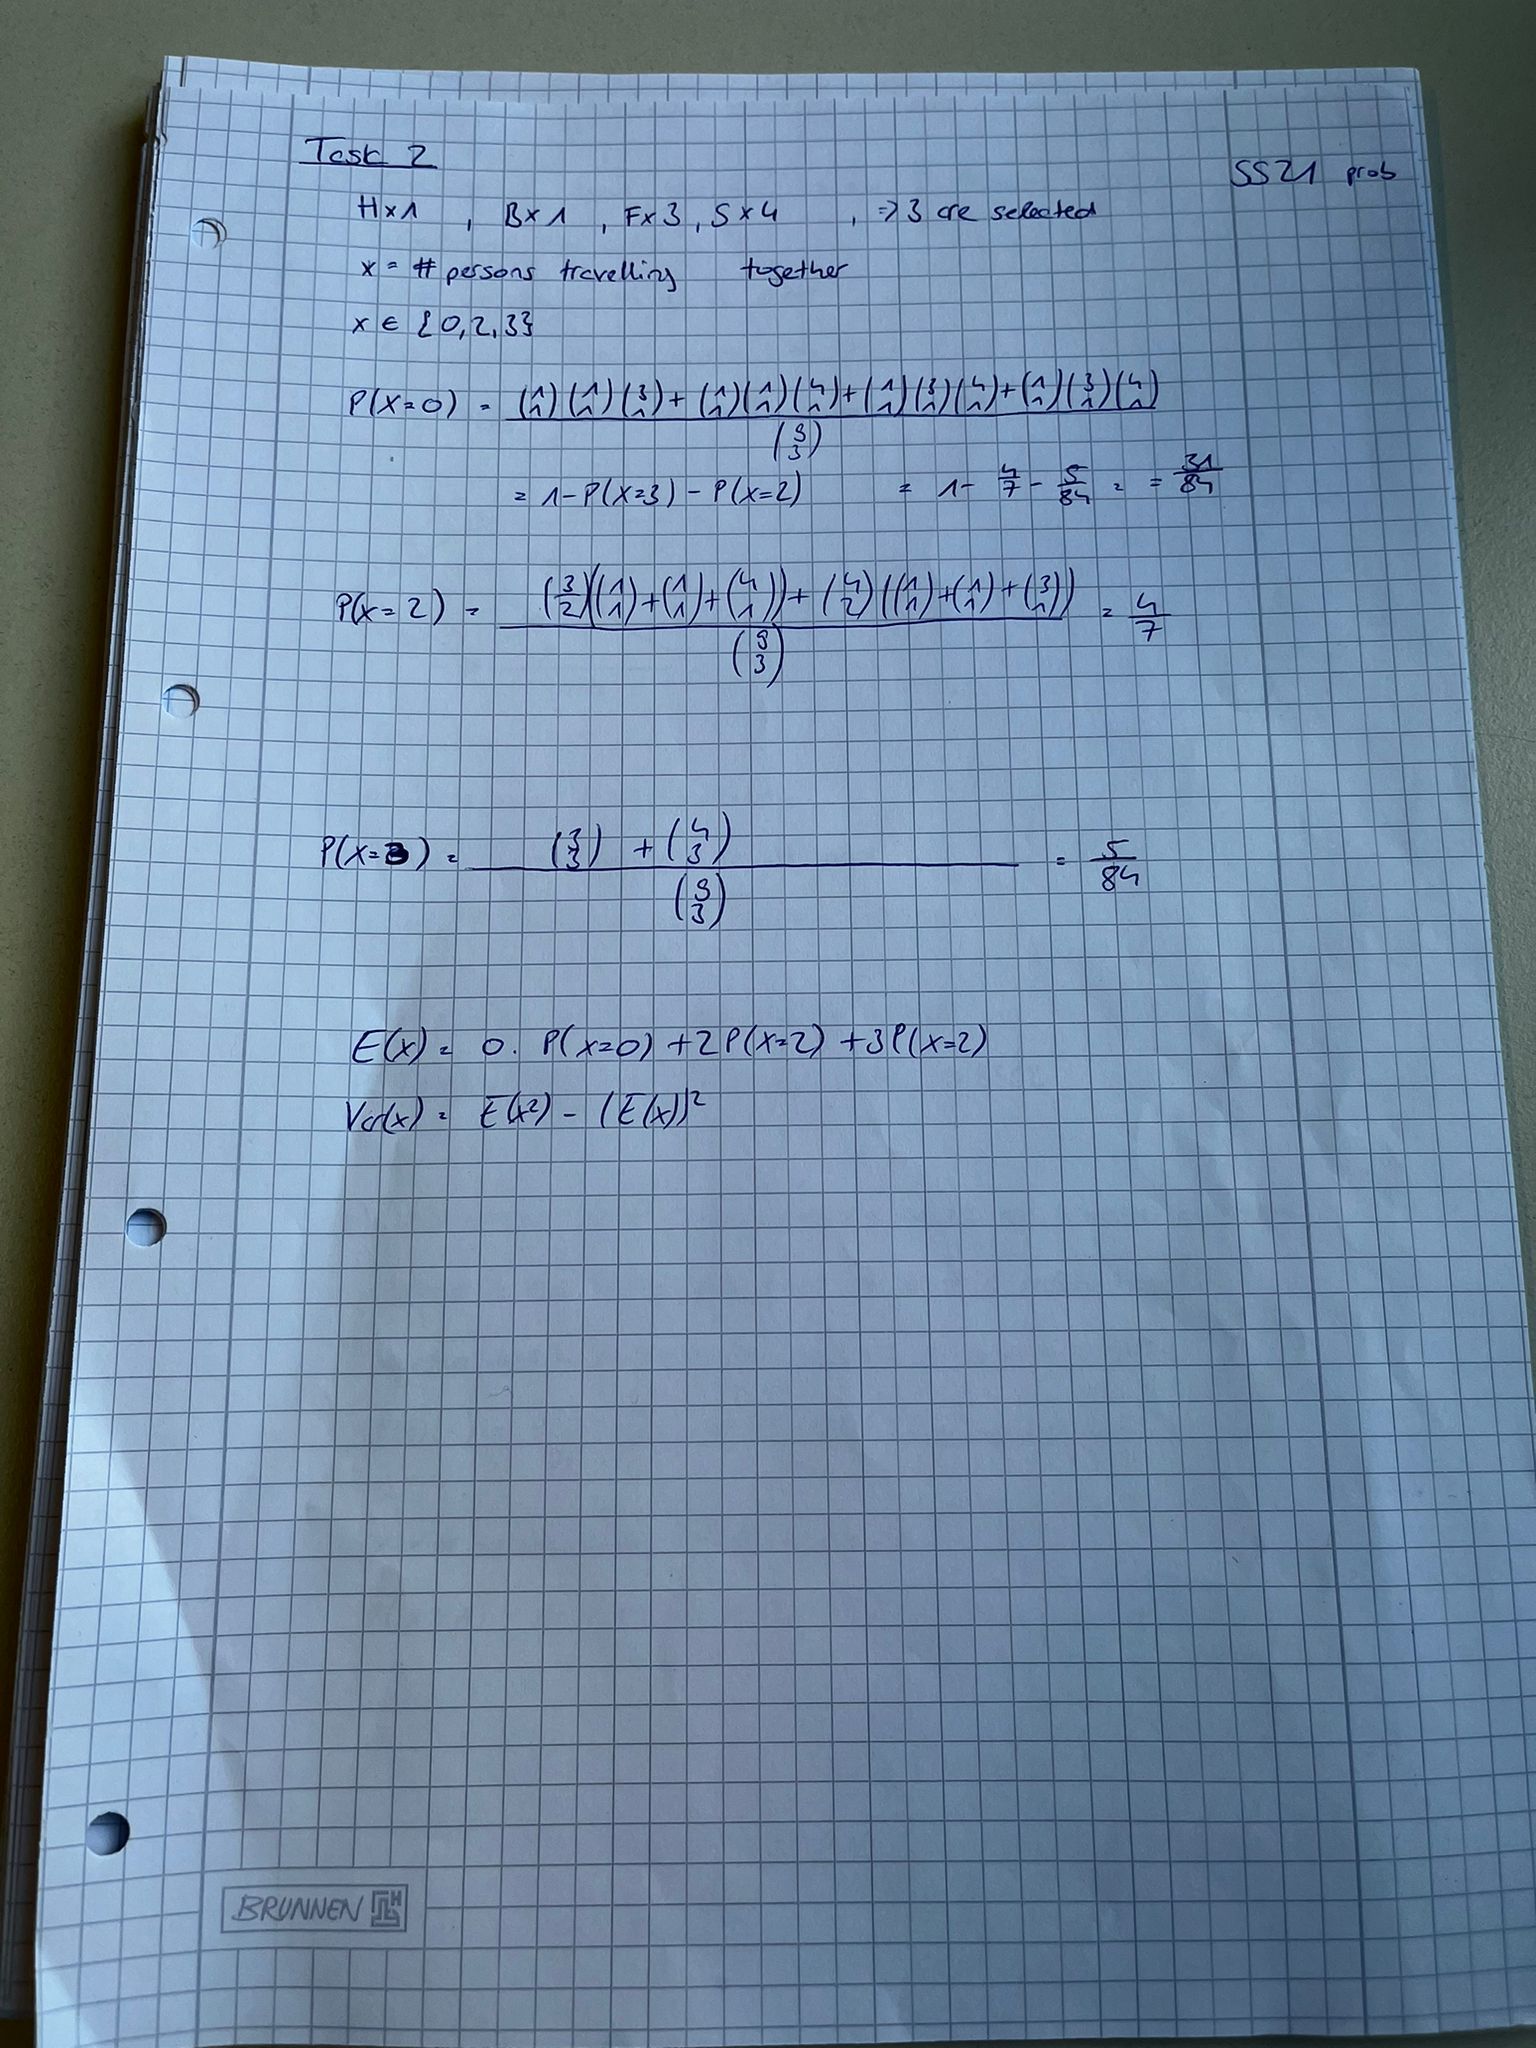 Task 2
SS21 prob
H×1 , B×1 , F×3 , S×4 , => 3 are selected
x = # persons travelling together
x ∈ {0,2,3}
P(X=0) = \frac{\binom{1}{1}\binom{1}{1}\binom{3}{1}+\binom{1}{1}\binom{1}{1}\binom{4}{1}+\binom{1}{1}\binom{3}{1}\binom{4}{1}+\binom{1}{1}\binom{3}{1}\binom{4}{1}}{\binom{9}{3}}
= 1-P(X=3) - P(X=2) = 1- \frac{4}{7} - \frac{5}{84} = = \frac{31}{84}
P(X=2) = \frac{\binom{3}{2}(\binom{1}{1}+\binom{1}{1}+\binom{4}{1})+\binom{4}{2}(\binom{1}{1}+\binom{1}{1}+\binom{3}{1})}{\binom{9}{3}} = \frac{4}{7}
P(X=3) = \frac{\binom{3}{3}+\binom{4}{3}}{\binom{9}{3}} = \frac{5}{84}
E(x) = 0 . P(X=0) +2P(X=2) +3P(X=2)
Var(x) = E(x²) - (E(x))²
BRUNNEN